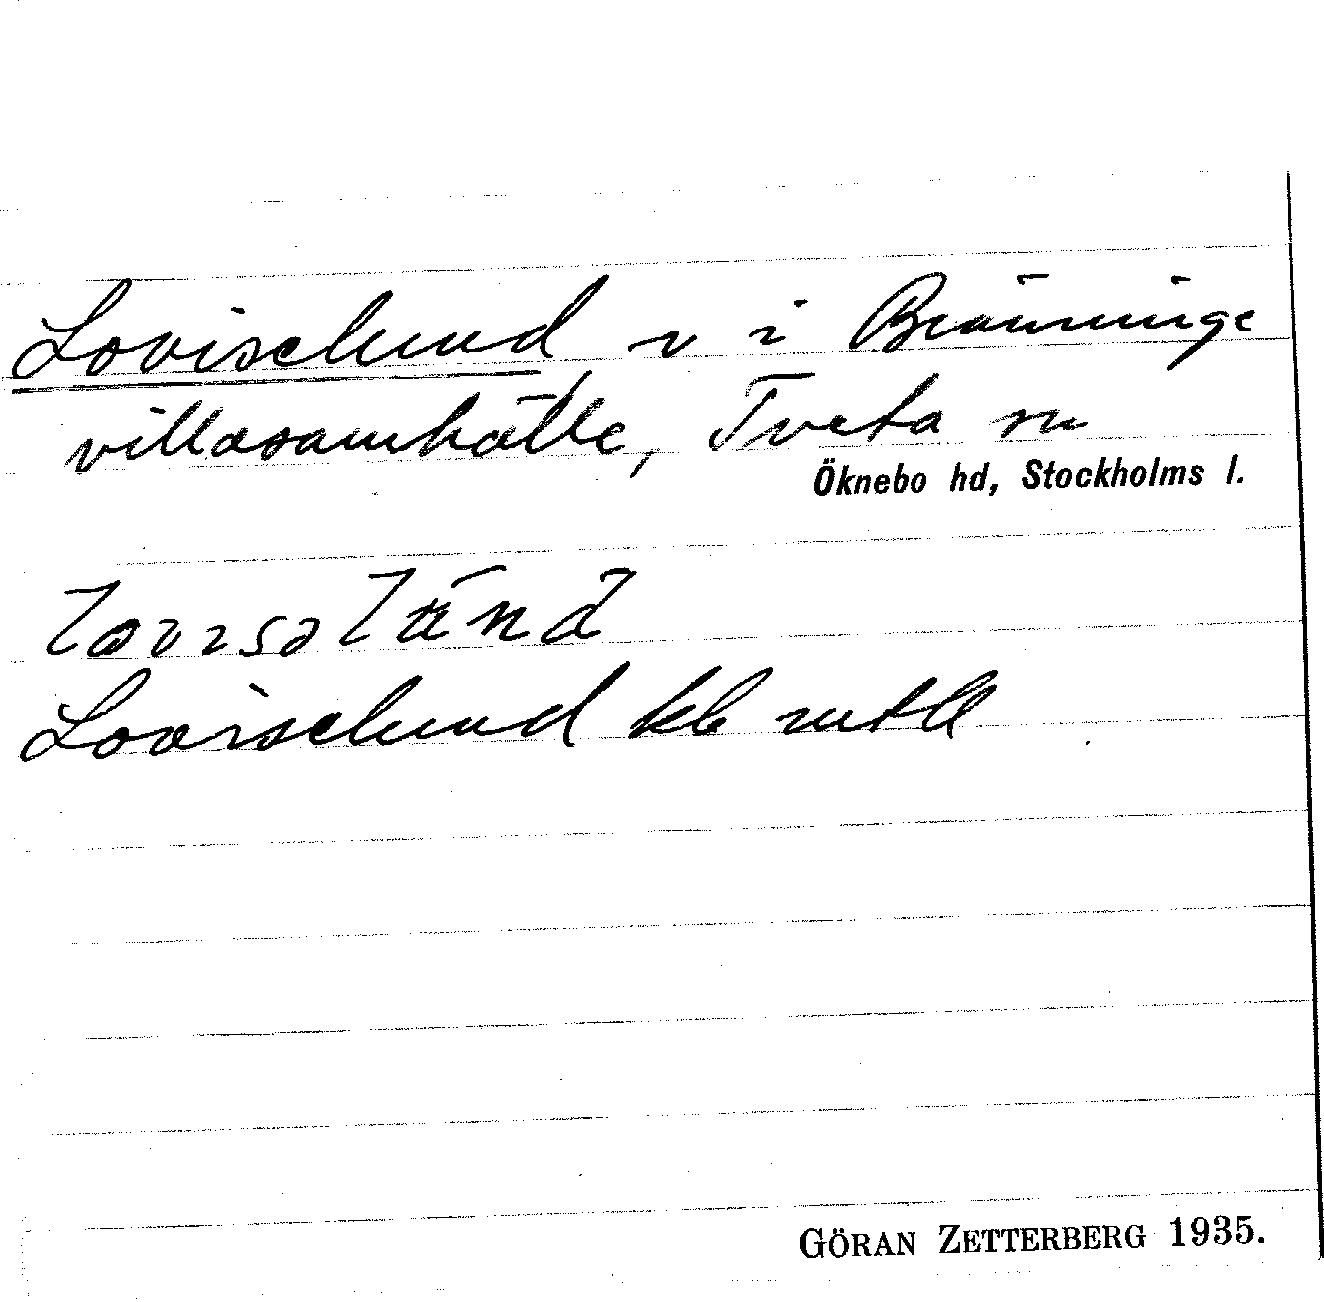 Loviselund v i Bränninge
villasamhälle, Tveta sn
Öknebo hd, Stockholms l.
Loviselund kb mtl
GÖRAN ZETTERBERG 1935.